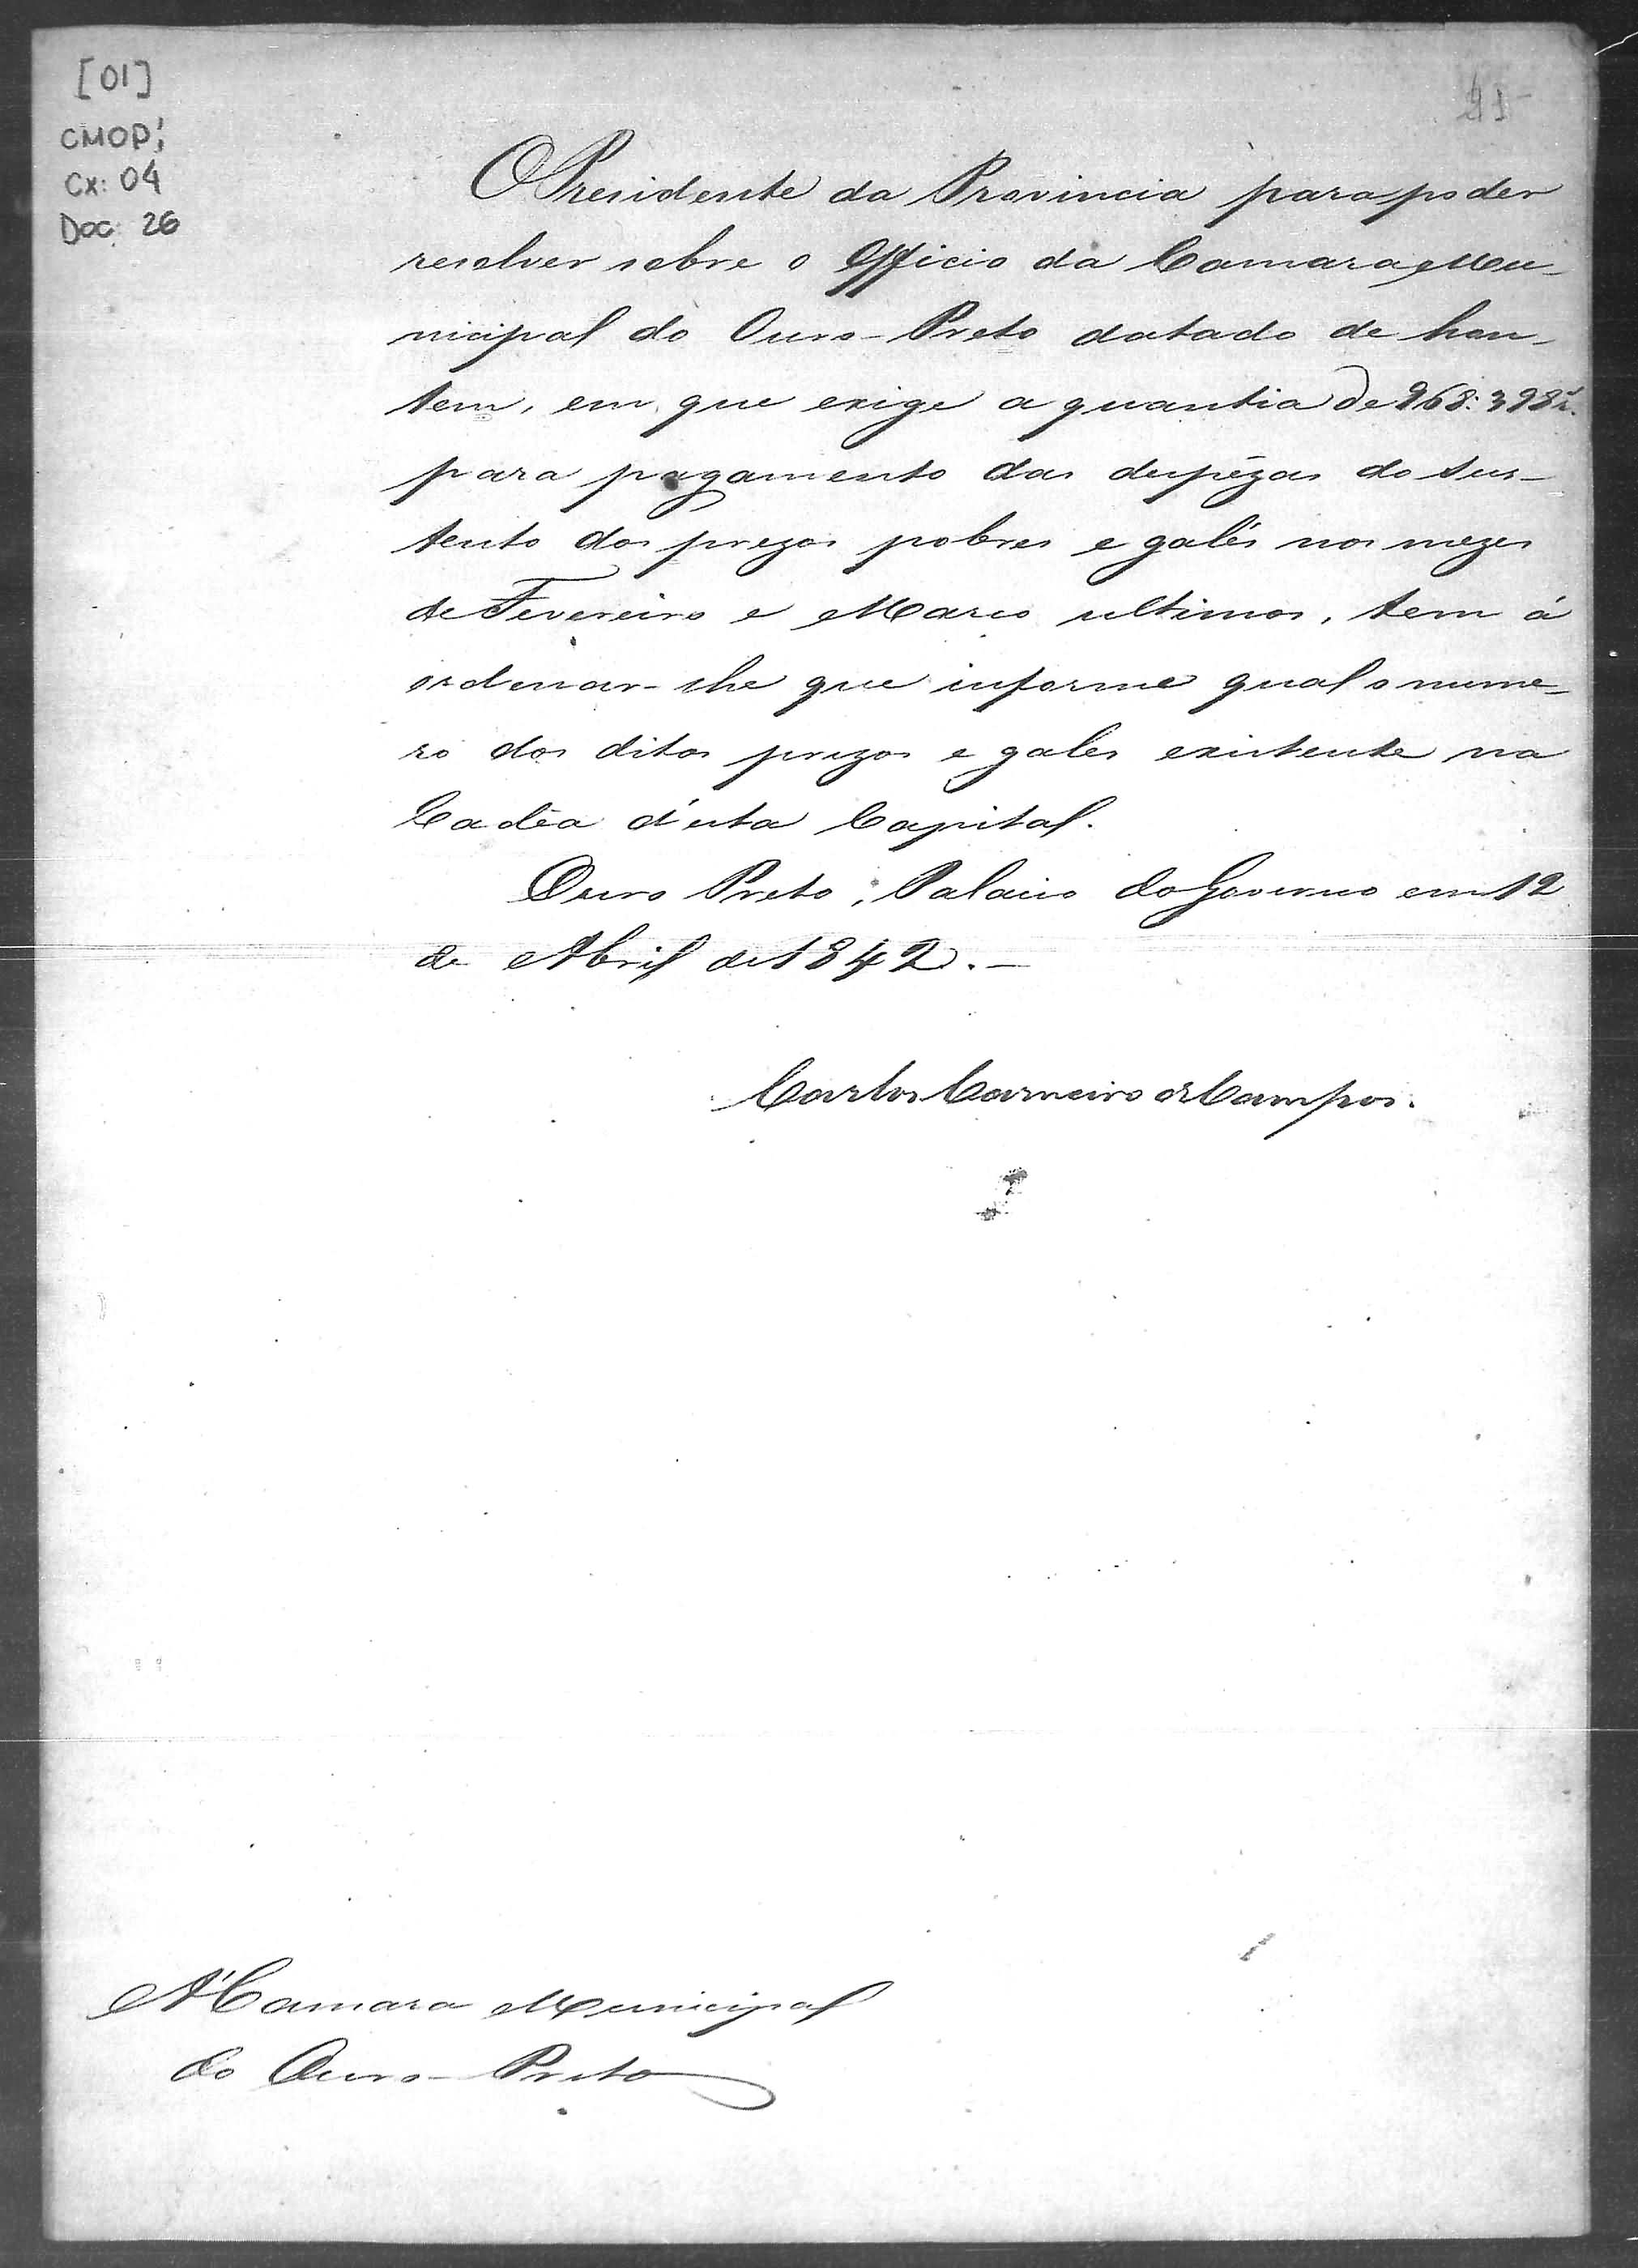 [01]
CMOP;
Cx: 04
Doc: 26
O Presidente da Provincia para poder
resolver sobre o Officio da Camara Mu-
nicipal do Ouro-Preto datado de hon-
tem, em que exige a quantia de 968:398 r.
para pagamento das despêzas do sus-
tento dos prezos pobres e galés nos mezes
de Fevereiro e Março ultimos, tem á
ordenar-lhe que informe qual o nume-
ro dos ditos prezos e gales existente na
Cadêa d'esta Capital.
Ouro Preto, Palacio do Governo em 12
de Abril de 1842.—
Carlos Carneiro de Campos.
A' Camara Municipal
do Ouro-Preto